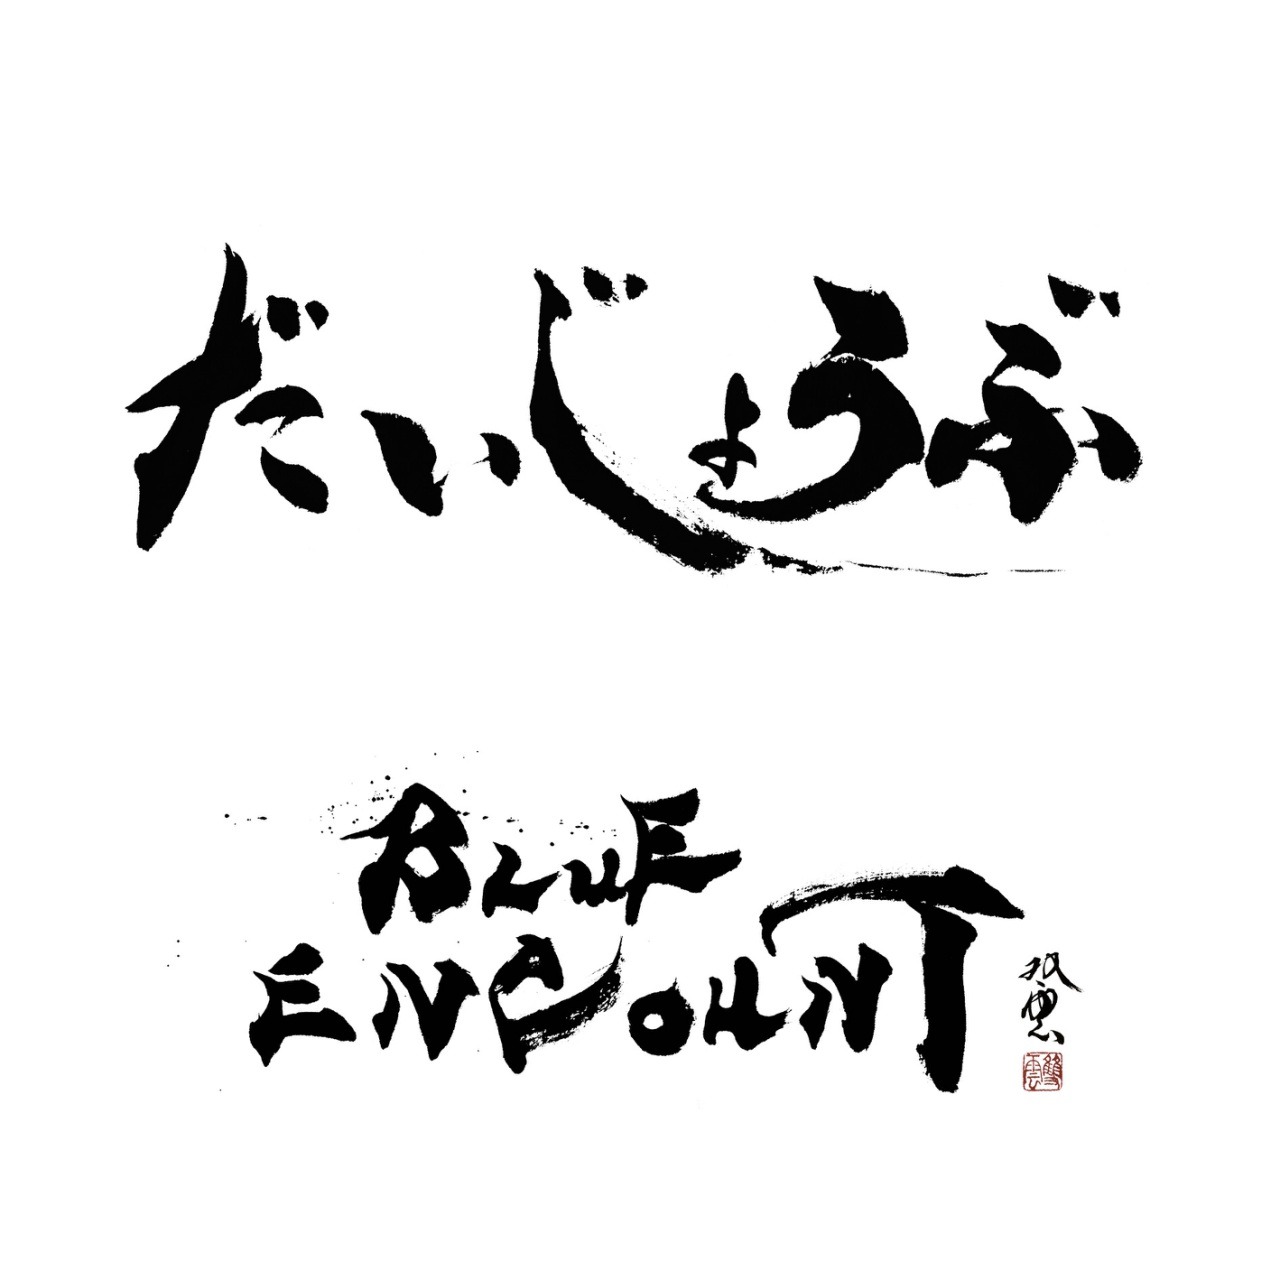 だいじょうぶ
BLUE
ENCOUNT
双雲
雙雲